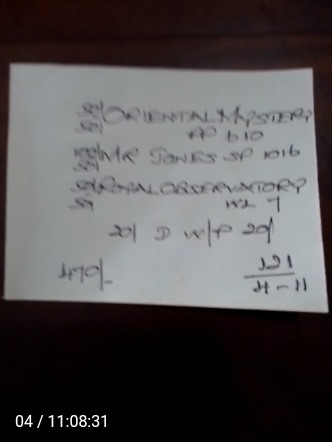 50/ ORIENTAL MYSTERY
50/ AP 610
100/ MR JONES SP 1016
50/
50/ ROYAL OBSERVATORY
50/ W2 7
20/ D W/P 20/
470/-
121
4-11
04 / 11:08:31